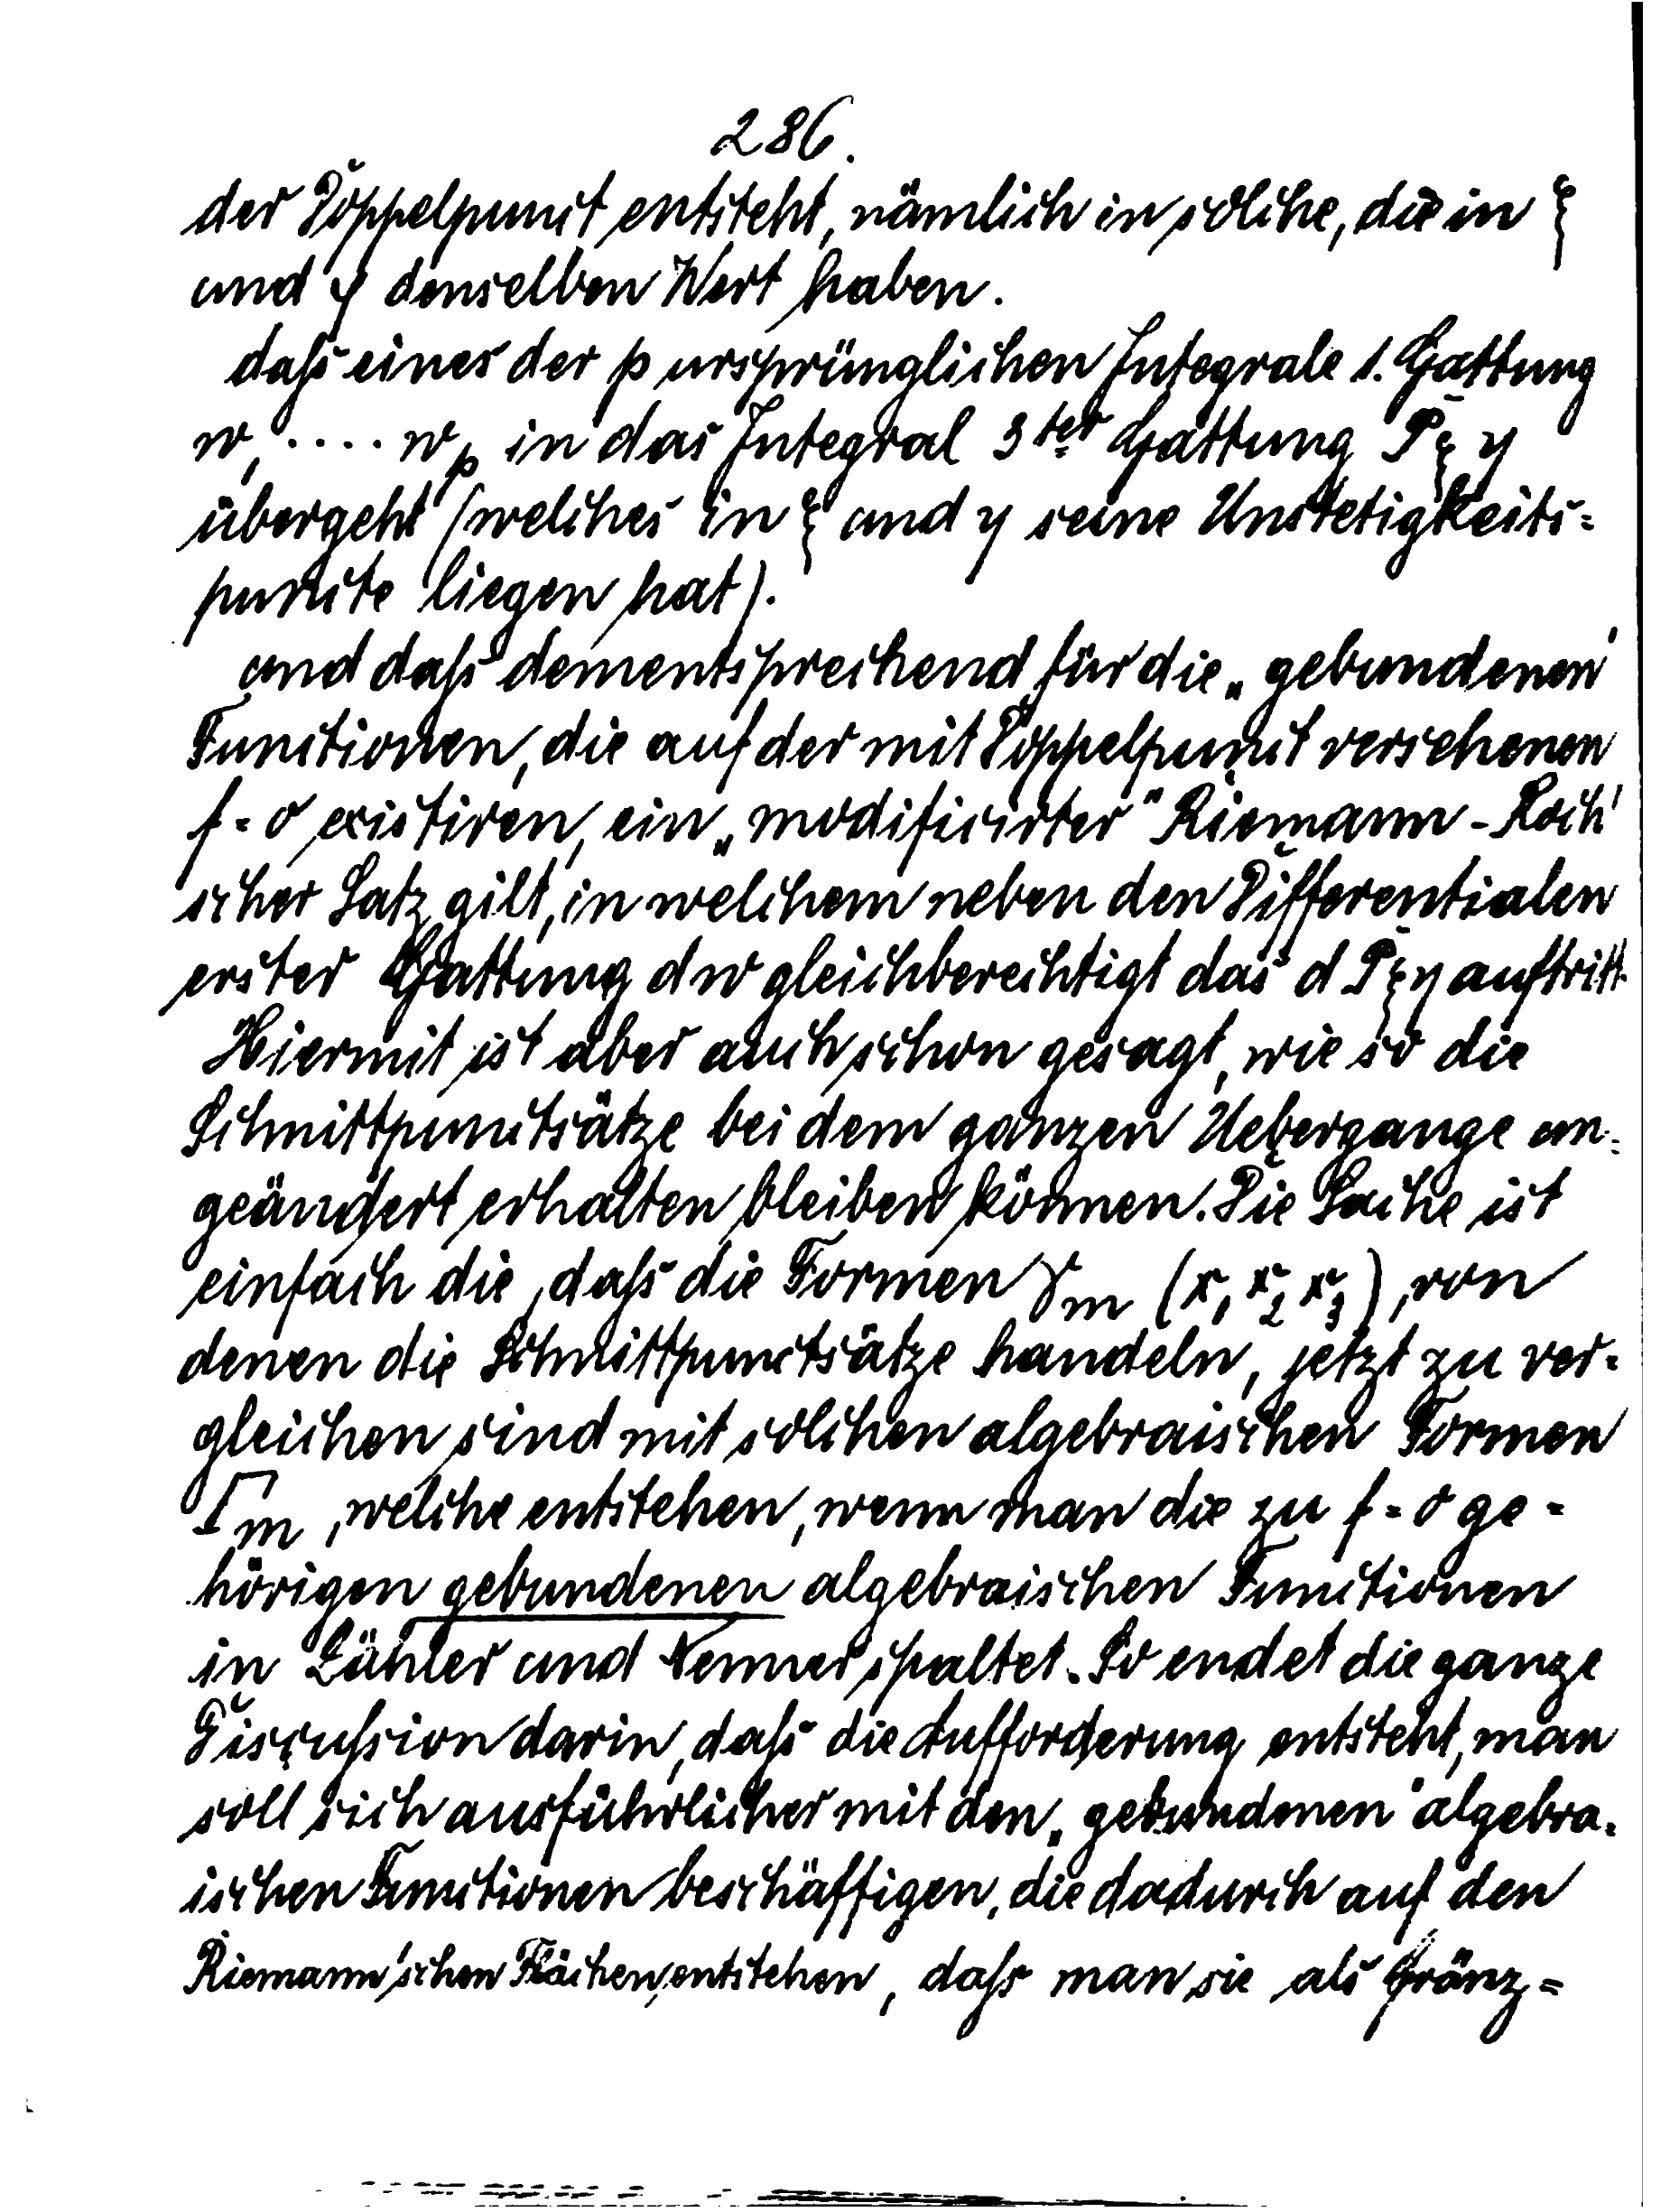 286.
der Doppelpunct entsteht, nämlich in solche, die in ξ
und η denselben Wert haben.
daß eines der p ursprünglichen Integrale 1. Gattung
w₁ .... w_p in das Integral 3ter Gattung P_ξη
übergeht (welches in ξ und η seine Unstetigkeits=
puncte liegen hat).
und daß dementsprechend für die „gebundenen"
Functionen, die auf der mit Doppelpunct versehenen
f=0 existiren, ein „modificirter" Riemann-Roch'
scher Satz gilt, in welchem neben den Differentialen
erster Gattung dw gleichberechtigt das dP_ξη auftritt.
Hiermit ist aber auch schon gesagt, wie so die
Schnittpunctsätze bei dem ganzen Uebergange un=
geändert erhalten bleiben können. Die Sache ist
einfach die, daß die Formen γ_m (x₁ x₂ x₃), von
denen die Schnittpunctsätze handeln, jetzt zu ver=
gleichen sind mit solchen algebraischen Formen
Γ_m, welche entstehen, wenn man die zu f=0 ge=
hörigen gebundenen algebraischen Functionen
in Zähler und Nenner spaltet. So endet die ganze
Discußion darin, daß die Aufforderung entsteht, man
soll sich ausführlicher mit den „gebundenen" algebra=
ischen Functionen beschäftigen, die dadurch auf den
Riemann'schen Flächen entstehen, daß man sie als Gränz=